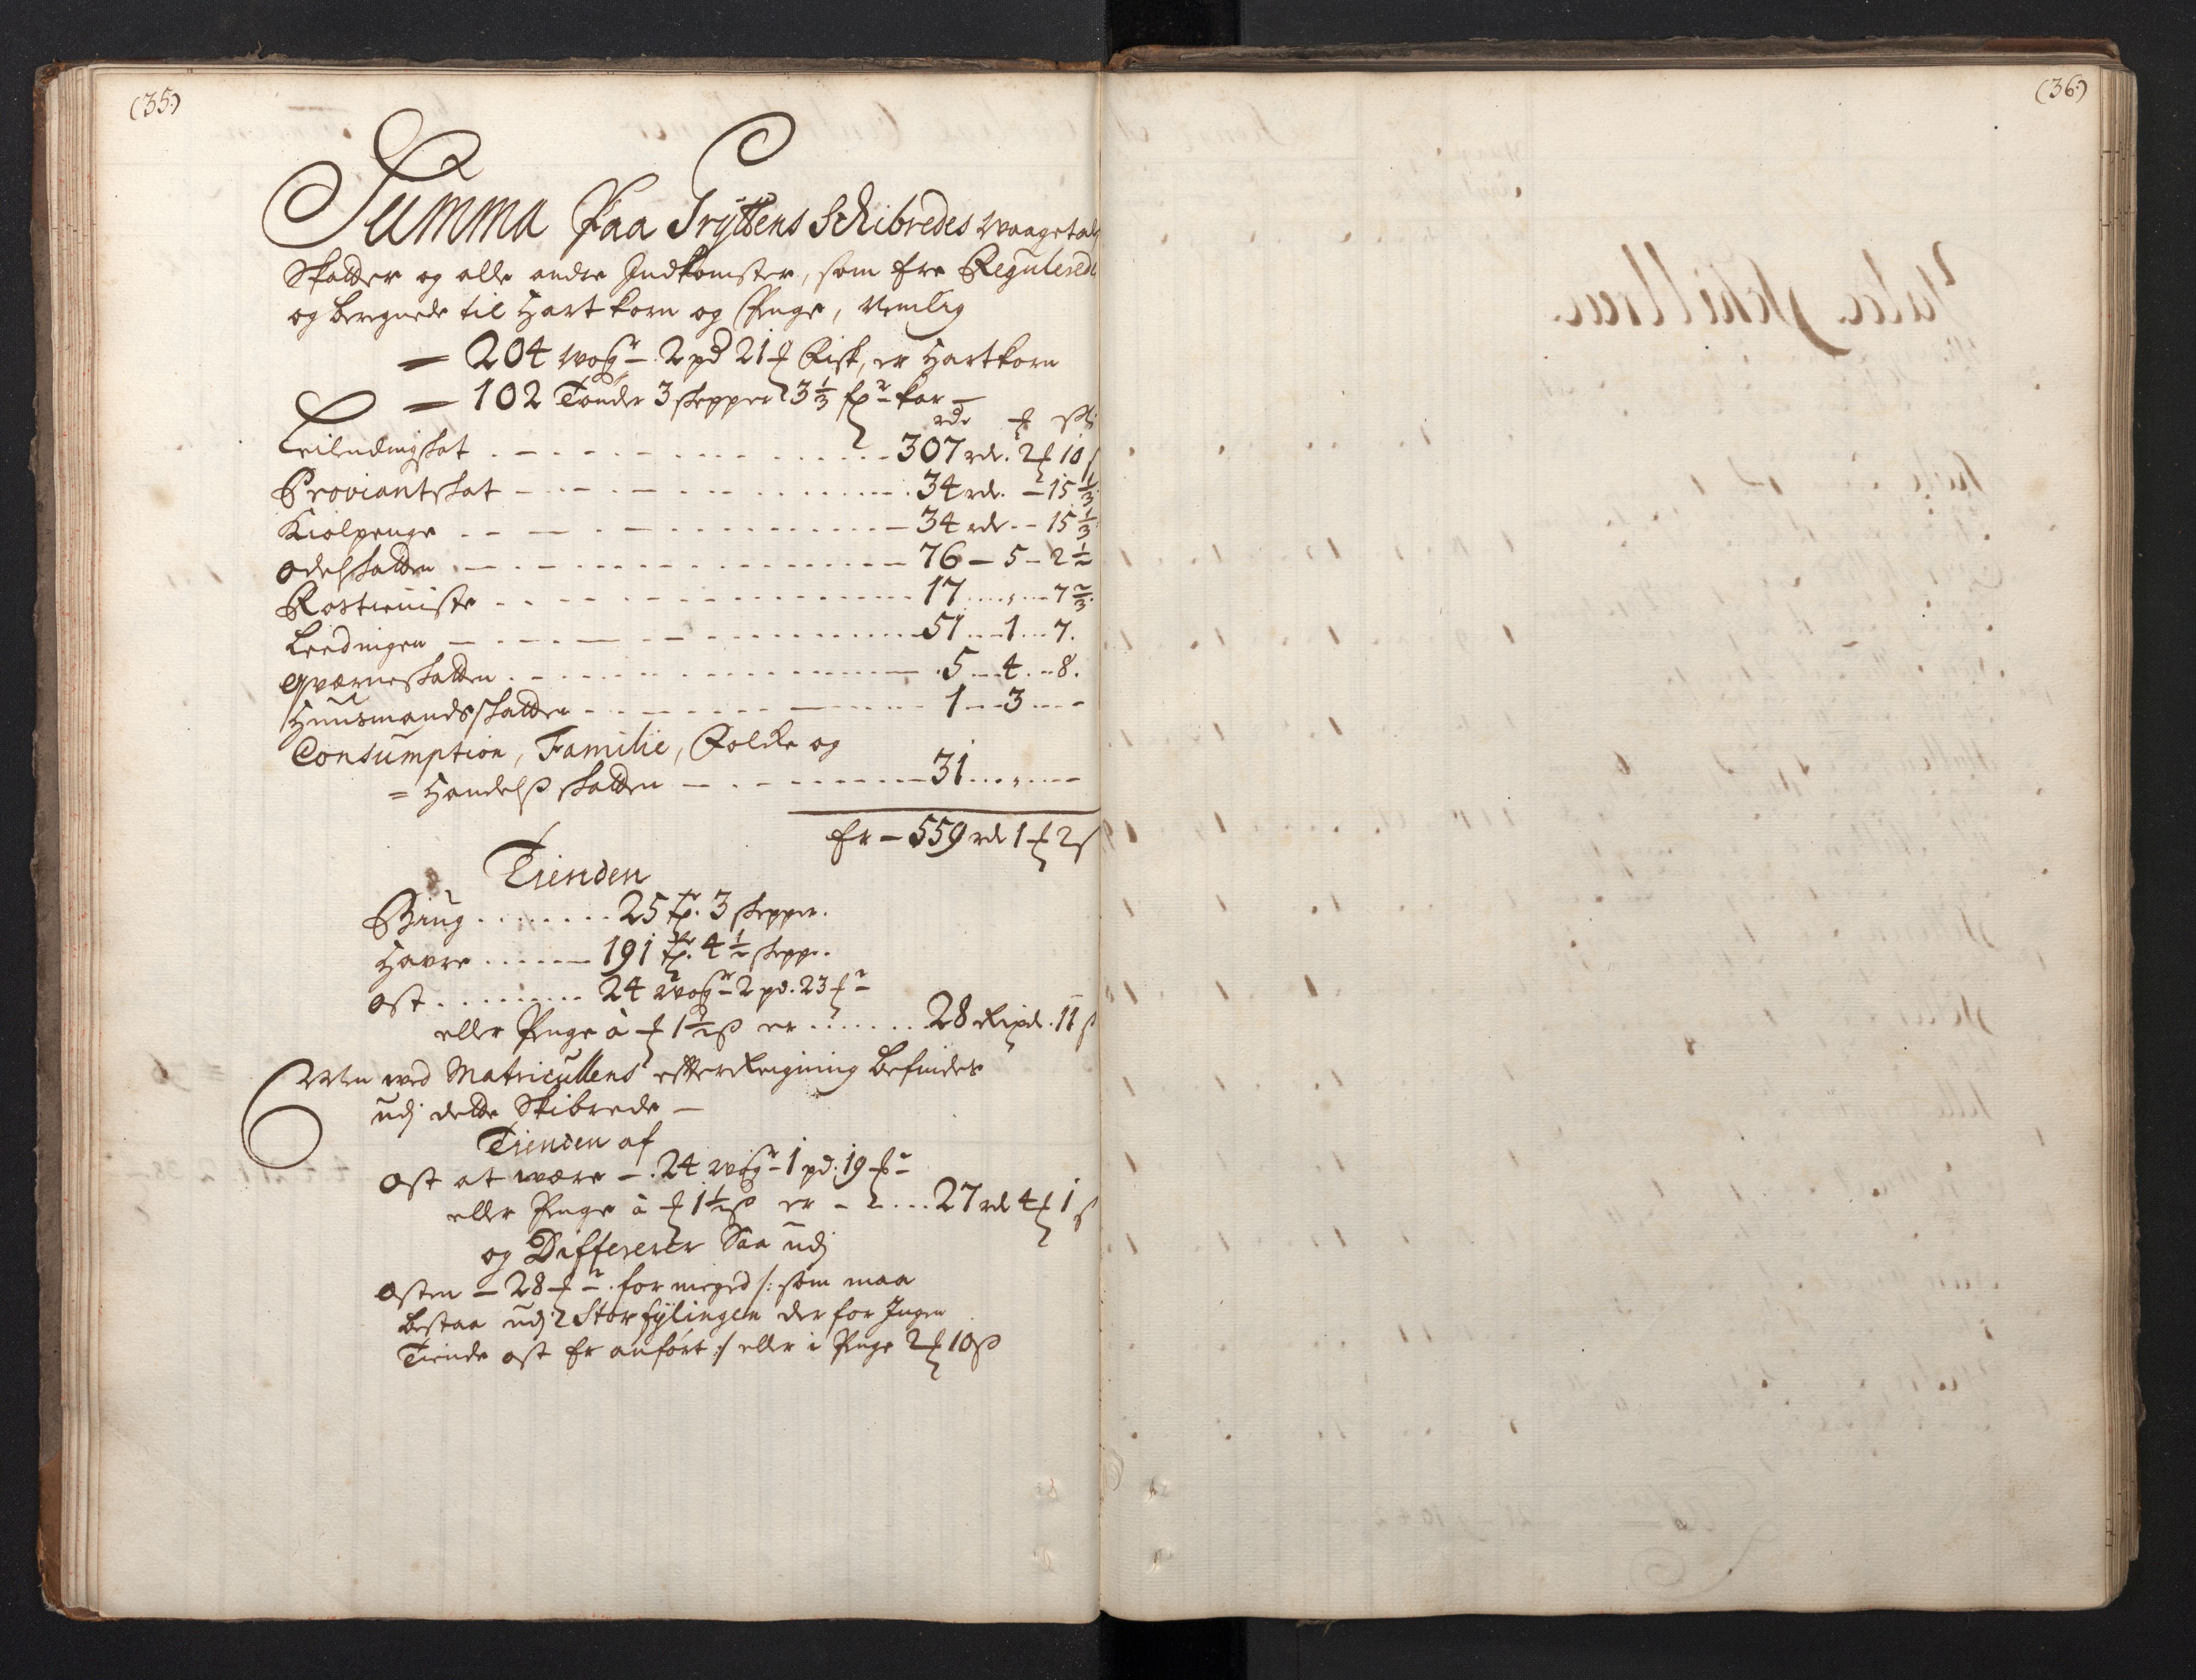 (35:)
Summa Paa Tryttens Schibredes Waagetals
Skatter og alle andre Indkomster, som Ere Regulerede
og beregnede til Hartkorn og Penge, Nemlig
— 204 wog 2 pd 21 Fisk, er Hartkorn
— 102 Tønder 3 skepper 3 1/3 for kar —
rdr
Leilendingskat - - - 307 rdr. 2 10
Proviantskat - - - 34 rdr. - 15 1/3
Kiolpenge - - - 34 rdr. - 15 1/3
Odelskatten - - - 76 - 5 - 2 1/2
Rostieniste - - - 17 . . . 7 2/3
Leedingen - - - 51 - 1 - 7.
Qværneskatten - - - 5 - 4 - 8.
Huusmandsskatten - - - 1 - 3 -
Consumption, Familie, Folcke og
= Handelsskatten - - - 31 . . . -
Er - 559 rd 1 2
Tienden
Biug . . . . . . . . 25 . 3 skepper.
Havre . . . . . 191 . 4 1/2 skepp.
Ost . . . . . . . . 24 wog 2 pd. 23
eller Penge à 1 1/2 ß er . . . . . 28 Rixdl. 11 ß
Men wed Matricullens efterReigning befindes
udj dette Skibrede —
Tienden af
Ost at være - . 24 wog 1 pd. 19
eller Penge à 1 1/2 ß er - . . . . 27 rd 4 1 ß
og Differerer Saa udj
Osten - 28 . for meged /: som maa
bestaa udj Storfylingen der for Ingen
Tiende ost Er anført :/ eller i Penge 2 10 ß
(36:)